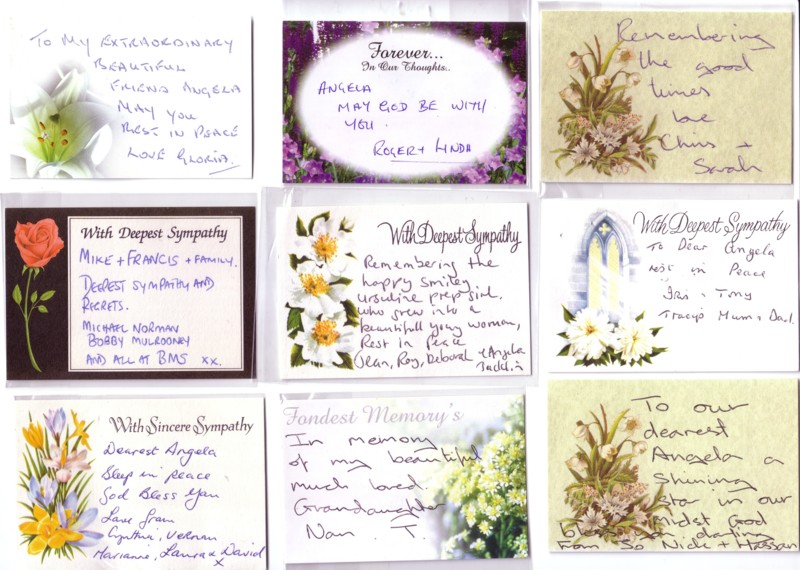 TO MY EXTRAORDINARY
BEAUTIFUL
FRIEND ANGELA
MAY YOU
REST IN PEACE
LOVE GLORIA.
Forever...
In Our Thoughts..
ANGELA
MAY GOD BE WITH
YOU.
ROGER + LINDA
Remembering
the good
times
love
Chris +
Sarah
With Deepest Sympathy
MIKE + FRANCIS + FAMILY.
DEEPEST SYMPATHY AND
REGRETS.
MICHAEL NORMAN
BOBBY MULROONEY
AND ALL AT BMS xx.
With Deepest Sympathy
Remembering the
happy smiley
ursuline prep girl.
who grew into a
beautifull young woman,
Rest in Peace
Jean, Roy, Deborah + Angela
With Deepest Sympathy
To Dear Angela
rest in Peace
Iris + Tony
Tracy's Mum + Dad.
With Sincere Sympathy
Dearest Angela
Sleep in peace
God Bless You
Love from
Cynthia, Vernan
Marianne, Laura & David
x
Fondest Memory's
In memory
of my beautiful
much loved
Grandaughter
Nan. T.
To our
dearest
Angela a
Shining
star in our
midst God
bless you darling
From Jo Nick + Hassan